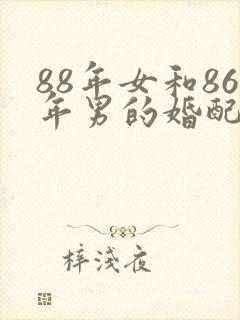 88年女和86
年男的婚配
梓淺夜